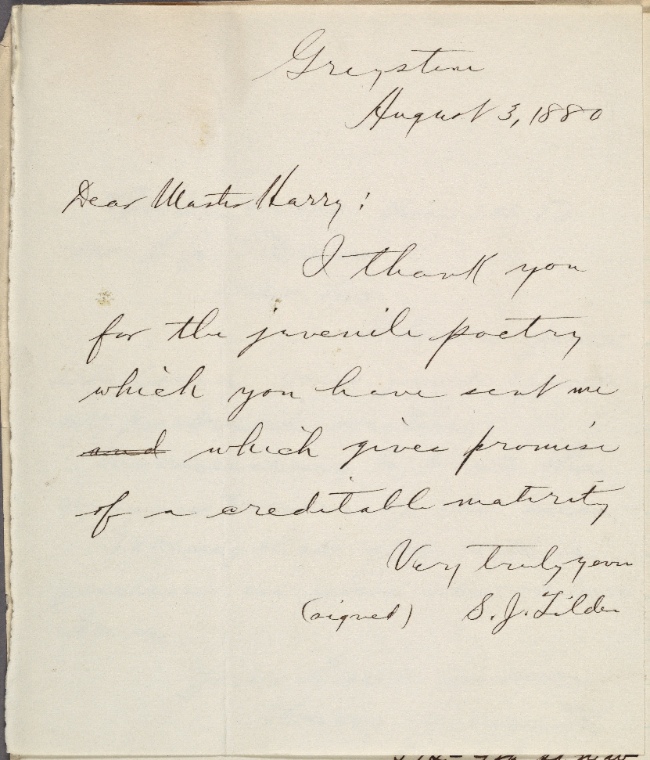 Greystone
August 3, 1880
Dear Master Harry:
I thank you
for the juvenile poetry
which you have sent me
and which gives promise
of a creditable maturity
Very truly yours
(signed) S. J. Tilden